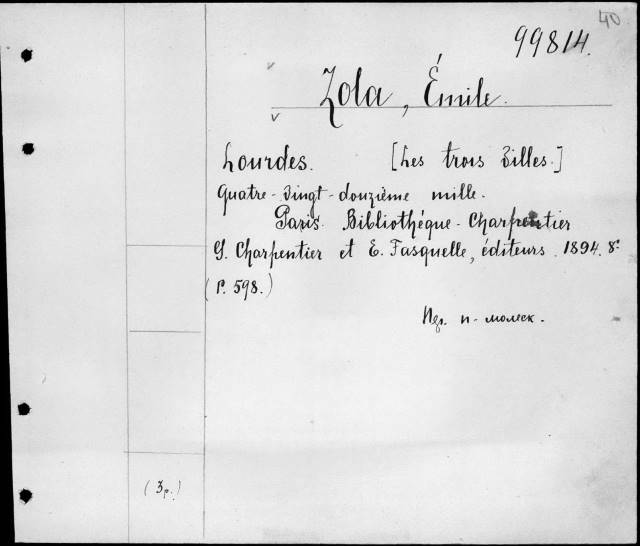 40
99814.
Zola, Émile.
Lourdes. [Les trois Villes.]
Quatre-Vingt-douzième mille.
Paris. Bibliothéque-Charpentier
G. Charpentier et E. Fasquelle, éditeurs. 1894. 8º
(P. 598.)
(3р.)